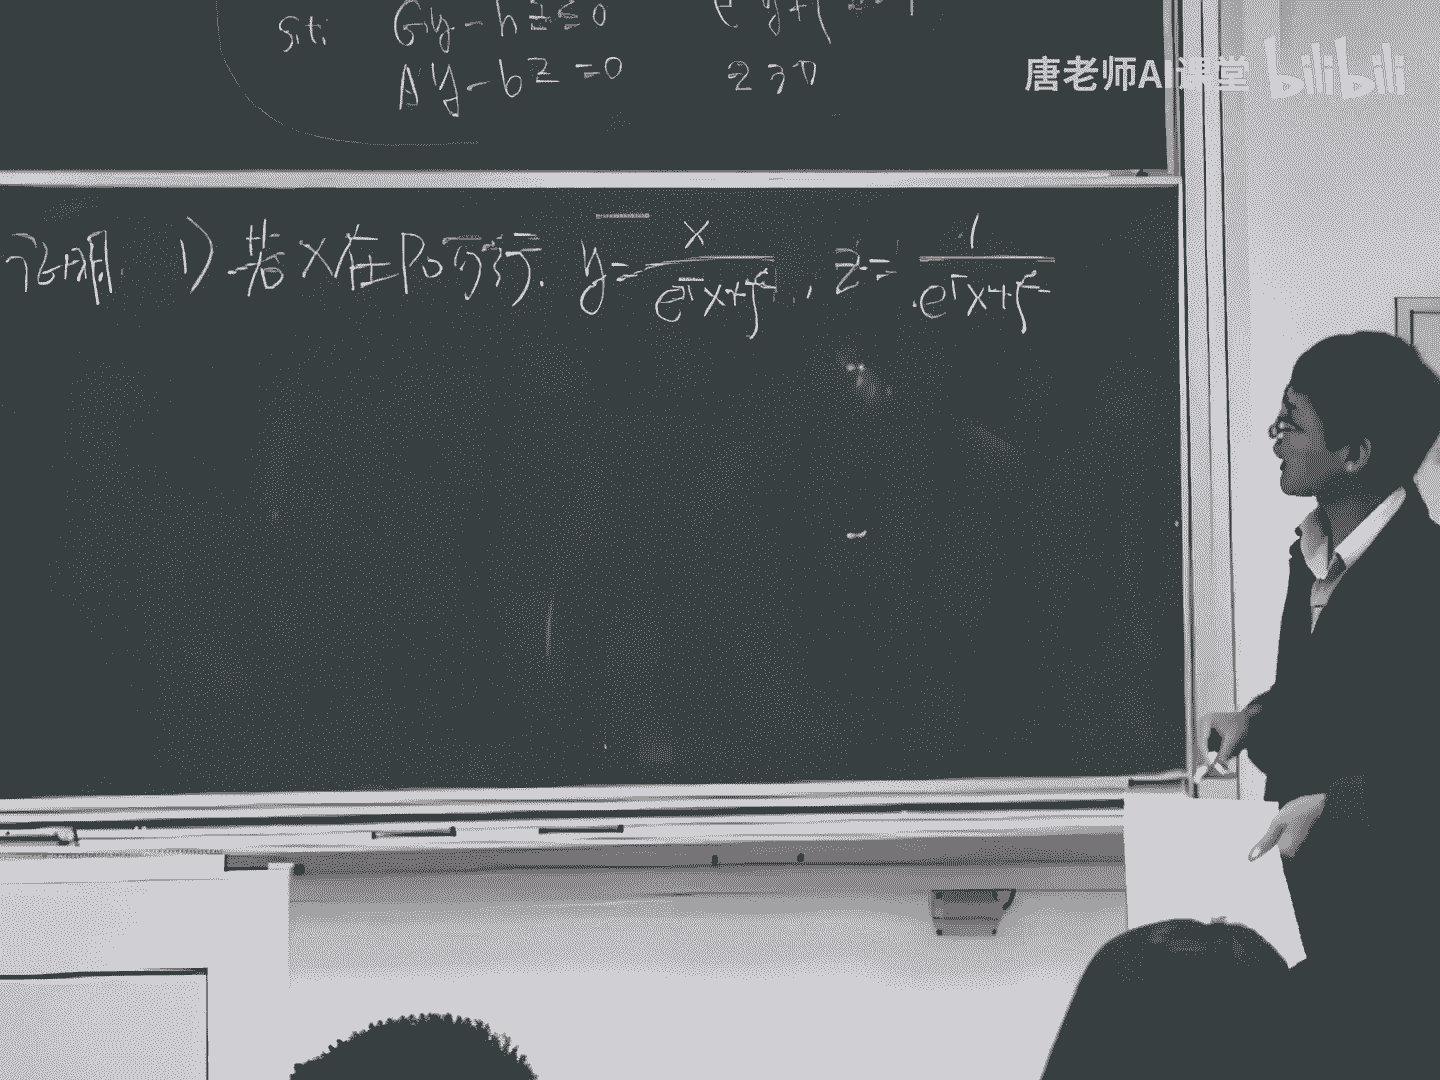 s.t. Gy - hz ≤ 0
Ay - bz = 0 z ≥ 0
唐老师AI课堂 bilibili
证明 1) 若 x 在 P₀ 可行. y = x/(eᵀx+f), z = 1/(eᵀx+f)